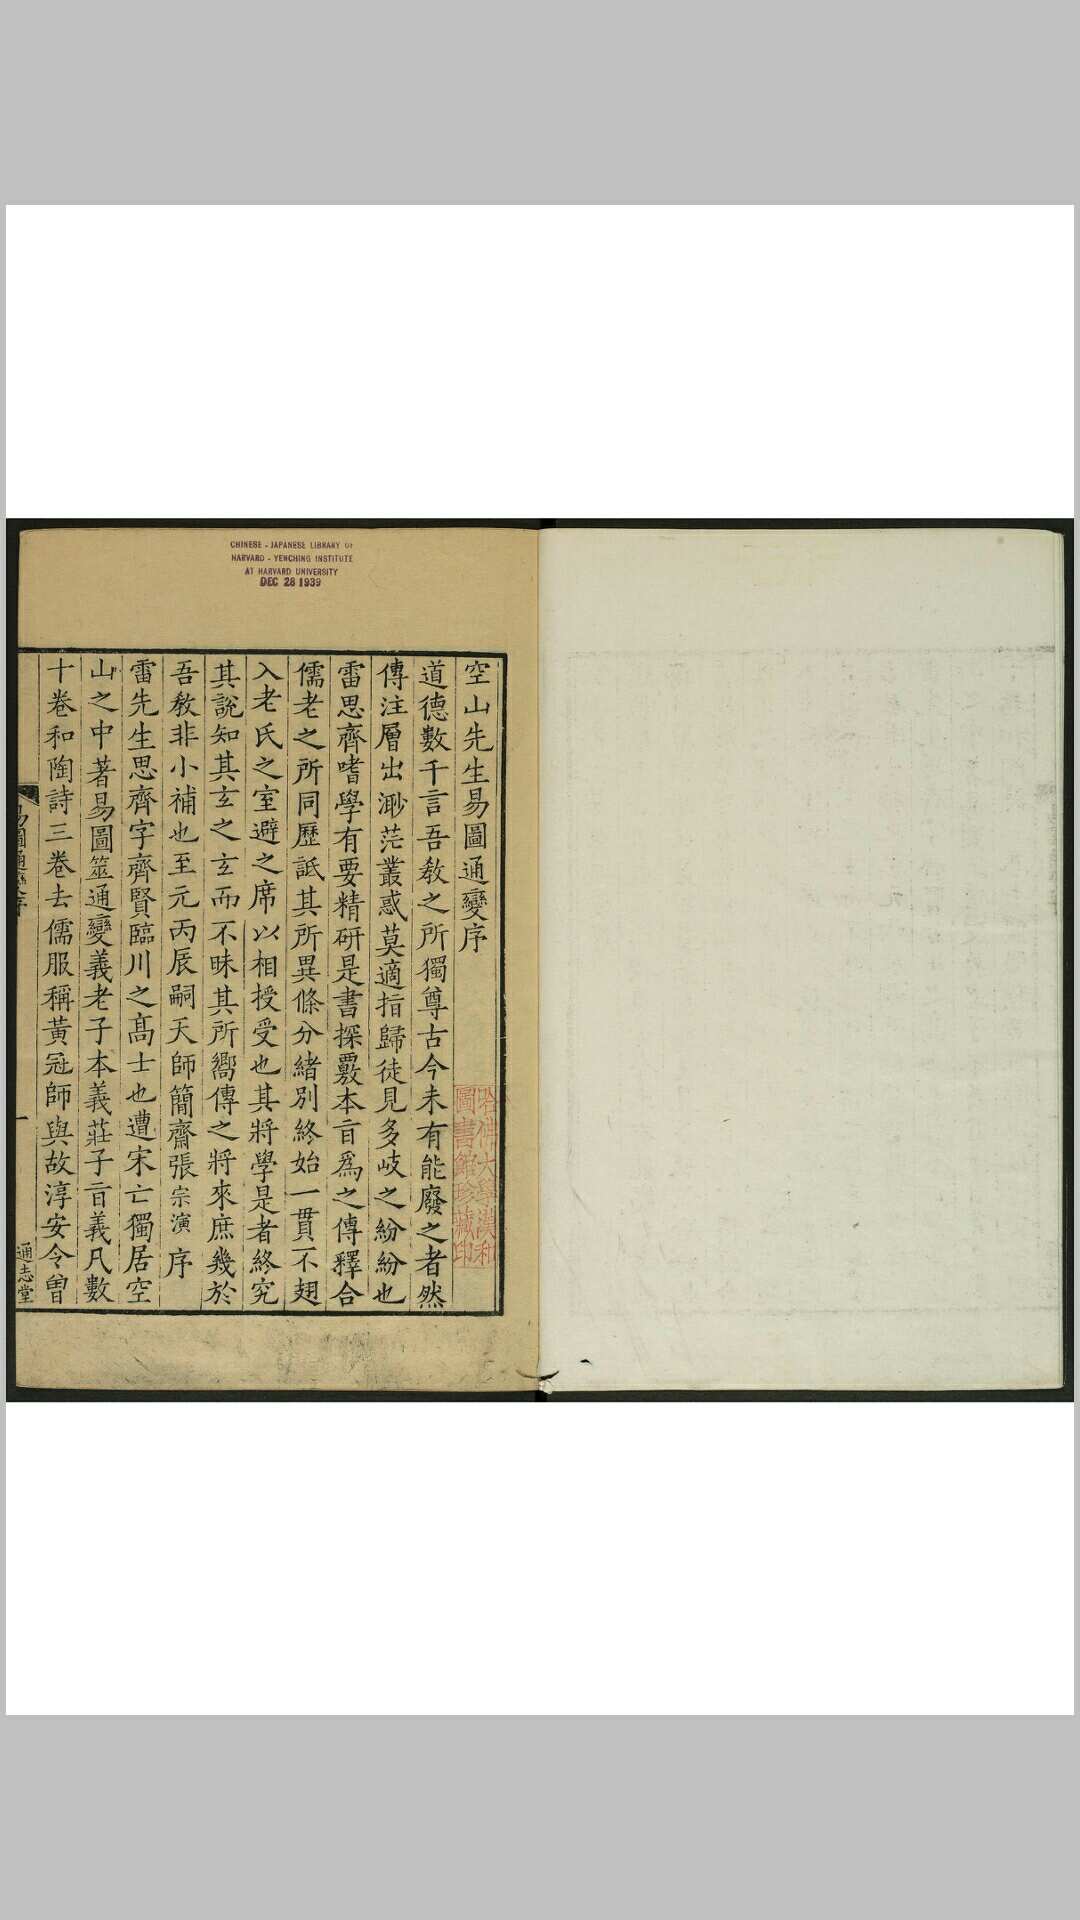 CHINESE - JAPANESE LIBRARY OF
HARVARD - YENCHING INSTITUTE
AT HARVARD UNIVERSITY
DEC 28 1939
空山先生易圖通變序
道德數千言吾敎之所獨尊古今未有能廢之者然
傳注層出渺茫叢惑莫適指歸徒見多岐之紛紛也
雷思齊嗜學有要精研是書探覈本旨爲之傳釋合
儒老之所同歷詆其所異條分緒別終始一貫不翅
入老氏之室避之席以相授受也其將學是者終究
其說知其玄之玄而不昧其所嚮傳之將來庶幾於
吾敎非小補也至元丙辰嗣天師簡齋張宗演序
雷先生思齊字齊賢臨川之高士也遭宋亡獨居空
山之中著易圖筮通變義老子本義莊子旨義凡數
十卷和陶詩三卷去儒服稱黃冠師與故淳安令曾
易圖通變序
一
通志堂
哈佛大學漢和
圖書館珍藏印